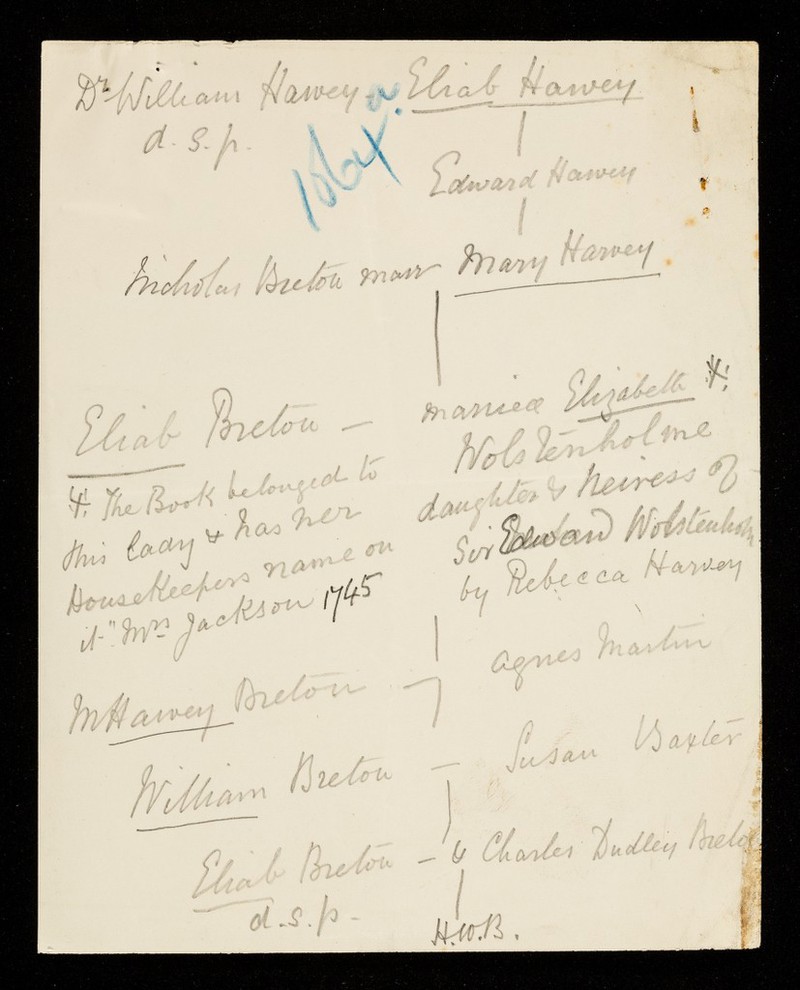 Dr William Harvey - Eliab Harvey
d. s. p.
1064 a.
Edward Harvey
Nicholas Breton marr Mary Harvey
Eliab Breton — married Elizabeth
Wolstenholme
daughter & heiress of
Sir Edward Wolstenholm
by Rebecca Harvey
The Book belonged to
this lady & has her
Housekeepers name on
it "Mrs Jackson 1745
M Harvey Breton — Agnes Martin
William Breton — Susan Baxter
Eliab Breton — & Charles Dudley Breton
d. s. p. -
H.W.B.